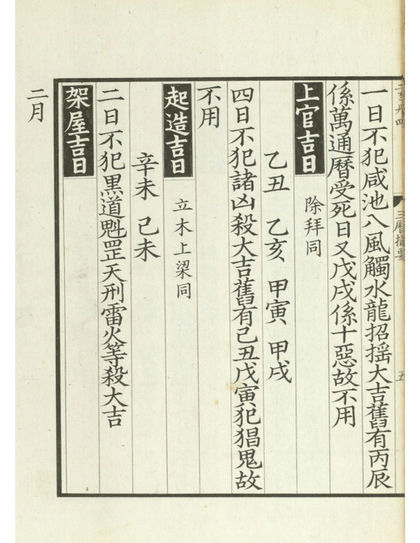 一日不犯咸池八風觸水龍招揺大吉舊有丙辰
係萬通曆受死日又戊戌係十惡故不用
上官吉日 除拜同
乙丑 乙亥 甲寅 甲戌
四日不犯諸凶殺大吉舊有己丑戊寅犯猖鬼故
不用
起造吉日 立木上梁同
辛未 己未
二日不犯黒道魁罡天刑雷火等殺大吉
架屋吉日
二月
三曆撮要
五